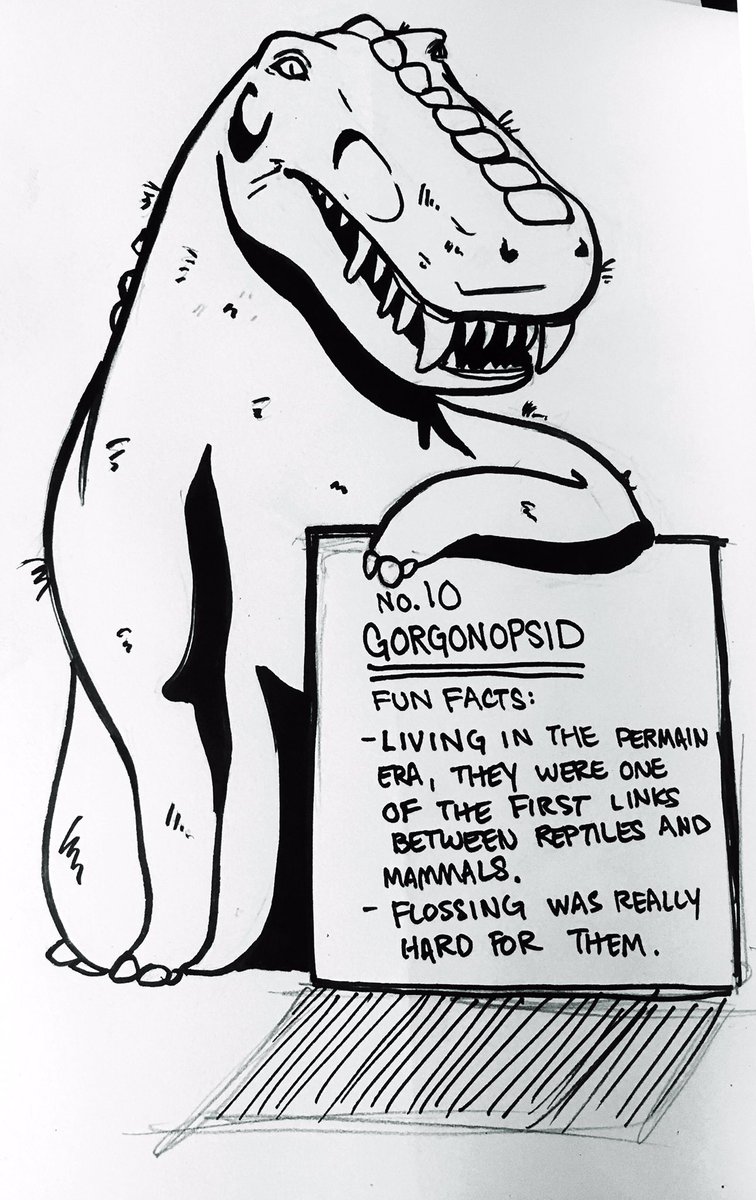 NO. 10
GORGONOPSID
FUN FACTS:
- LIVING IN THE PERMAIN
ERA, THEY WERE ONE
OF THE FIRST LINKS
BETWEEN REPTILES AND
MAMMALS.
- FLOSSING WAS REALLY
HARD FOR THEM.